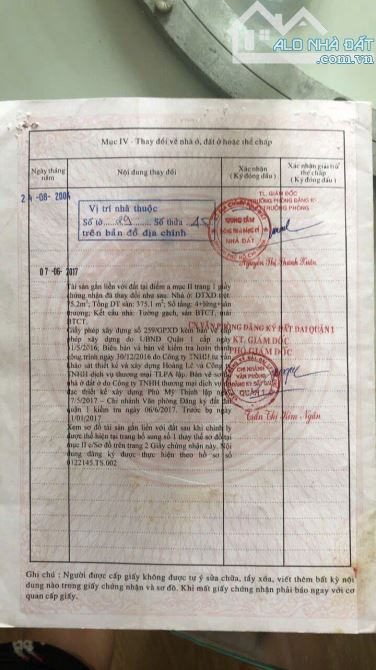 ALO NHÀ ĐẤT
.com.vn
Mục IV - Thay đổi về nhà ở, đất ở hoặc thế chấp
Ngày tháng năm
Nội dung thay đổi
Xác nhận (Ký đóng dấu)
Xác nhận giải trừ thế chấp (Ký đóng dấu)
24-08-2004
Vị trí nhà thuộc
Số tờ 29 Số thửa 15
trên bản đồ địa chính
TL. GIÁM ĐỐC
TRƯỞNG PHÒNG
TRUNG TÂM
NHÀ ĐẤT
Nguyễn Thị Thanh Xuân
07-06-2017
Tài sản gắn liền với đất tại điểm a mục II trang 1 giấy
chứng nhận đã thay đổi như sau: Nhà ở: DTXD trệt:
75.2m²; Tổng DT sàn: 375.1 m²; Số tầng: 4+lửng+sân
thượng; Kết cấu nhà: Tường gạch, sàn BTCT, mái
BTCT.
Giấy phép xây dựng số 259/GPXD kèm bản vẽ cấp
phép xây dựng do UBND Quận 1 cấp ngày
11/5/2016; Biên bản và bản vẽ kiểm tra hoàn thành
công trình ngày 30/12/2016 do Công ty TNHH tư vấn
khảo sát thiết kế và xây dựng Hoàng Lê và Công ty
TNHH dịch vụ thương mại TLPA lập. Bản vẽ sơ đồ
nhà ở đất ở do Công ty TNHH thương mại dịch vụ đo
đạc thiết kế xây dựng Phú Mỹ Thịnh lập ngày
17/5/2017 – Chi nhánh Văn phòng Đăng ký đất đai
quận 1 kiểm tra ngày 06/6/2017. Trước bạ ngày
11/01/2017
Xem sơ đồ tài sản gắn liền với đất sau khi chỉnh lý
được thể hiện tại trang bổ sung số 1 thay thế sơ đồ tại
mục II c/Sơ đồ trên trang 2 Giấy chứng nhận này. Nội
dung đăng ký được thực hiện theo hồ sơ số
0122145.TS.002
CN VĂN PHÒNG ĐĂNG KÝ ĐẤT ĐAI QUẬN 1
KT. GIÁM ĐỐC
PHÓ GIÁM ĐỐC
CHI NHÁNH
VĂN PHÒNG
QUẬN 1
Trần Thị Kim Ngân
Ghi chú : Người được cấp giấy không được tự ý sửa chữa, tẩy xóa, viết thêm bất kỳ nội
dung nào trong giấy chứng nhận và sơ đồ. Khi mất giấy chứng nhận phải báo ngay với cơ
quan cấp giấy.